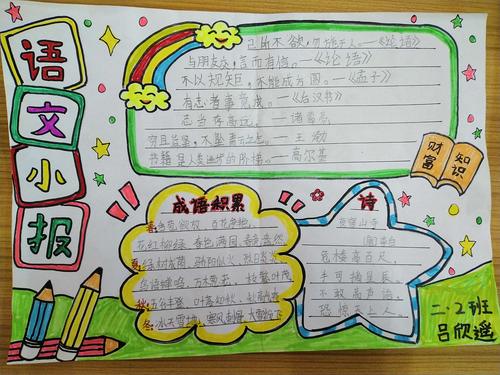 语
文
小
报
己所不欲,勿施于人。—《论语》
与朋友交,言而有信。—《论语》
不以规矩,不能成方圆。—《孟子》
有志者事竟成。—《后汉书》
志当存高远。—诸葛亮
穷且益坚,不坠青云之志。—王勃
书籍是人类进步的阶梯。—高尔基
财富
知识
成语积累
百花争艳
花红柳绿 春色满园
夏:绿树成荫 骄阳似火
鸟语蝉鸣 万木葱茏 枝繁叶茂
秋:五谷丰登 叶落知秋
冬:冰天雪地 寒风刺骨
诗
夜宿山寺
[唐]李白
危楼高百尺,
手可摘星辰。
不敢高声语,
恐惊天上人。
二.2班
吕欣遥